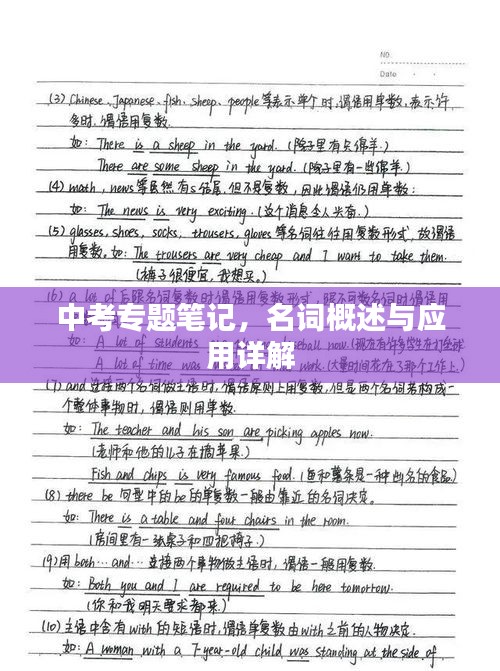 NO.
Date
(3) Chinese、Japanese、fish、sheep、people等表示单个时,谓语用单数,表示许
多时,谓语用复数.
如: There is a sheep in the yard. (院子里有只绵羊.)
There are some sheep in the yard. (院子里有一些绵羊.)
(4) math、news等虽然有s结尾,但不是复数,因此谓语仍用单数:
如: The news is very exciting. (这个消息令人兴奋.)
(5) glasses, shoes, socks, trousers, gloves等名词往往用复数形式,故谓语
用复数.如: The trousers are very cheap and I want to take them.
(裤子很便宜,我想买.)
(6) a lot of 后跟名词复数时谓语用复数形式,跟不可数名词时谓语用
中考专题笔记，名词概述与应
用详解
如: A lot of students
A lot of time was
(7) and连接两个名词做主语时,谓语原则上用复数,但是两个名词若构成一
个整体事物时,谓语则用单数.
如: The teacher and his son are picking apples now.
(老师和他的儿子在摘苹果.)
Fish and chips is very famous food. (鱼和薯条是一种出名的食品)
(8) there be 句型中的be的单复数一般由靠近的名词决定.
如: There is a table and four chairs in the room.
(房间里有一张桌子和四把椅子.)
(9) 用both…and…连接两个事物做主语时,谓语一般用复数.
如: Both you and I are required to be here tomorrow.
(你和我明天要求都来.)
(10) 主语中含有with的短语时,谓语单复数由with之前的人物决定.
如: A woman with a 7-year-old child was standing at the side of